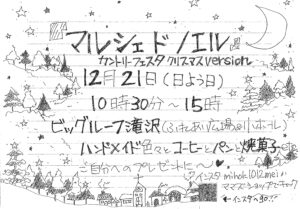 マルシェド ノエル
カントリーフェスタ クリスマスversion
12月21日(日よう日)
10時30分〜15時
ビッグルーフ滝沢(ふれあい広場@小ホール)
ハンドメイド色々とコーヒーとパンと焼菓子etc
〜自分へのプレゼントに〜♥
インスタ mihok.1012mei
ママズショップでチェック
←インスタ